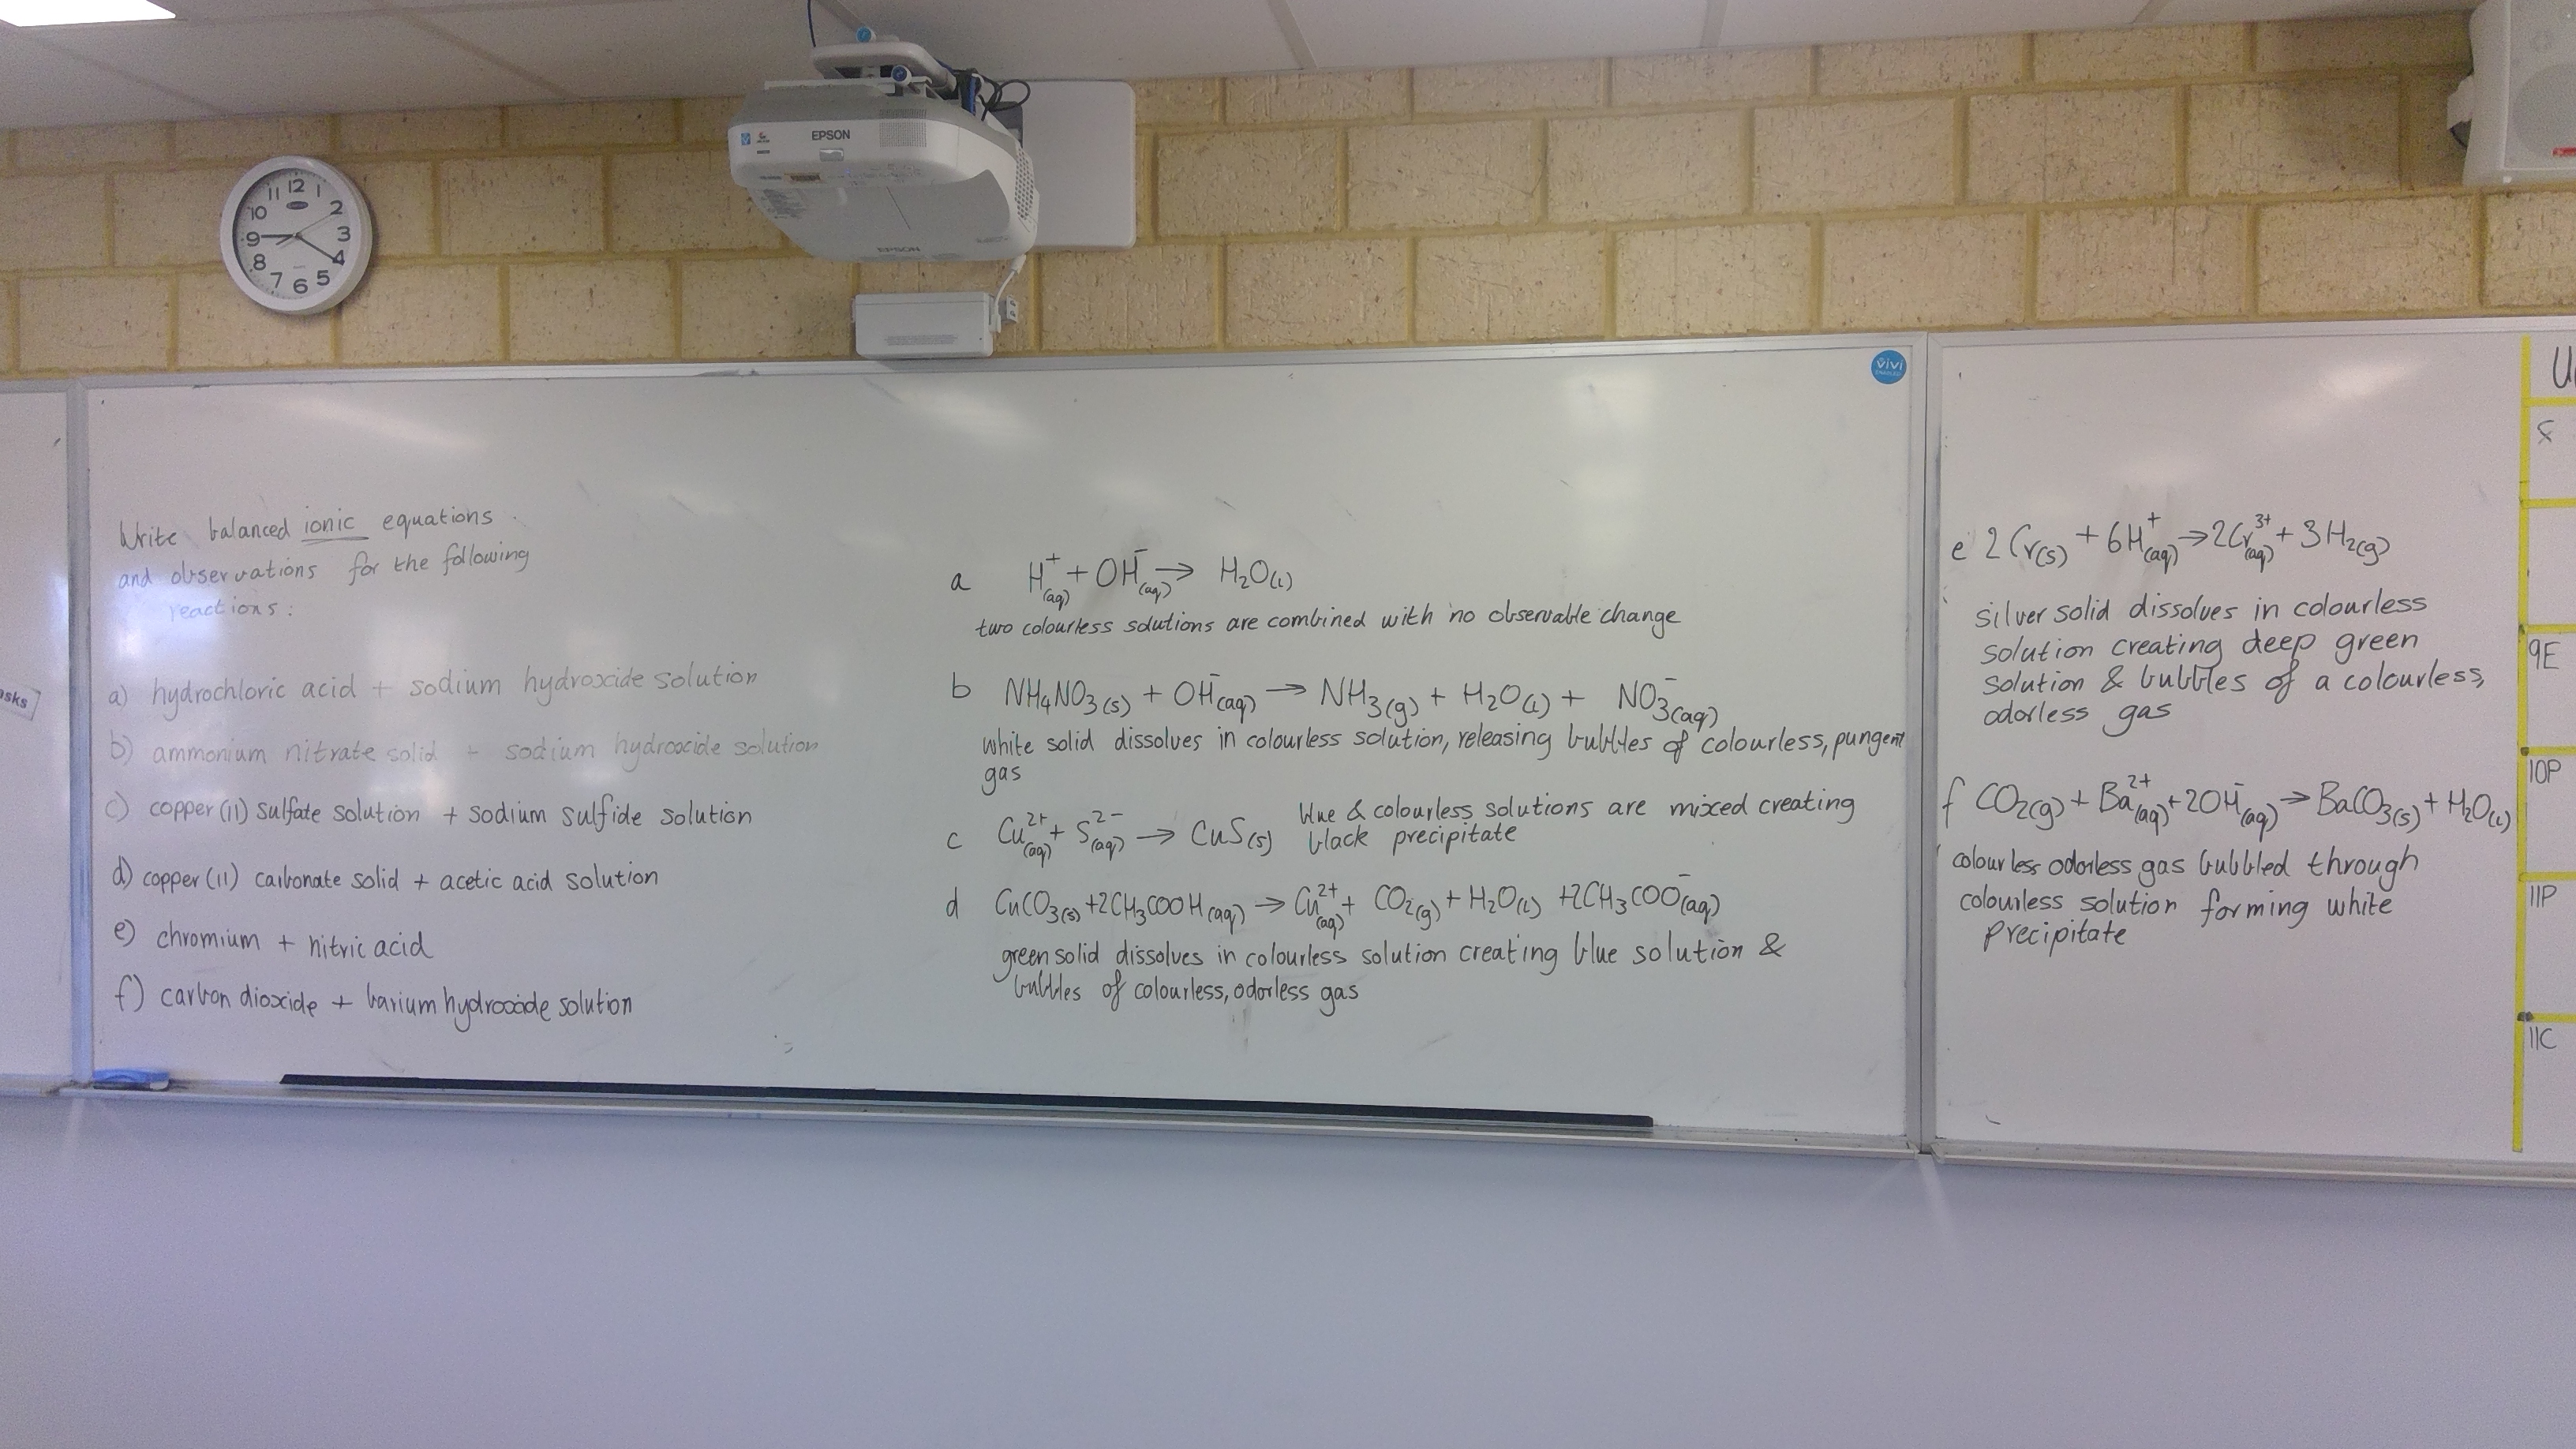 EPSON
EPSON
12
1
2
3
4
5
6
7
8
9
10
11
vivi
asks
Write balanced ionic equations
and observations for the following
reactions:
a) hydrochloric acid + sodium hydroxide solution
b) ammonium nitrate solid + sodium hydroxide solution
c) copper (11) sulfate solution + sodium sulfide solution
d) copper (11) carbonate solid + acetic acid solution
e) chromium + nitric acid
f) carbon dioxide + barium hydroxide solution
a H⁺(aq) + OH⁻(aq) → H₂O(l)
two colourless solutions are combined with no observable change
b NH₄NO₃(s) + OH⁻(aq) → NH₃(g) + H₂O(l) + NO₃⁻(aq)
white solid dissolves in colourless solution, releasing bubbles of colourless, pungent
gas
c Cu²⁺(aq) + S²⁻(aq) → CuS(s) blue & colourless solutions are mixed creating
black precipitate
d CuCO₃(s) + 2CH₃COOH(aq) → Cu²⁺(aq) + CO₂(g) + H₂O(l) + 2CH₃COO⁻(aq)
green solid dissolves in colourless solution creating blue solution &
bubbles of colourless, odorless gas
e 2Cr(s) + 6H⁺(aq) → 2Cr³⁺(aq) + 3H₂(g)
silver solid dissolves in colourless
solution creating deep green
solution & bubbles of a colourless,
odorless gas
f CO₂(g) + Ba²⁺(aq) + 2OH⁻(aq) → BaCO₃(s) + H₂O(l)
colourless odorless gas bubbled through
colourless solution forming white
precipitate
9E
10P
11P
11C